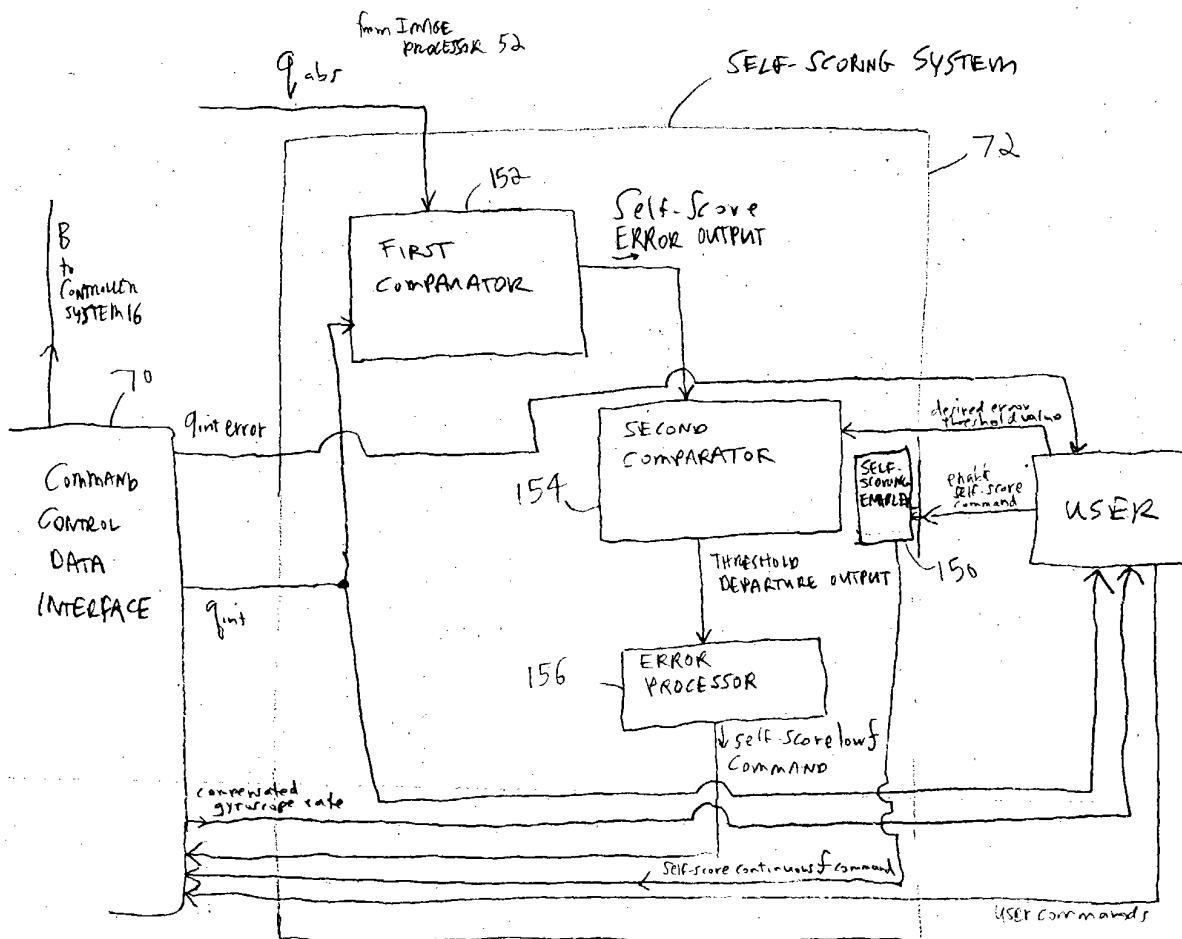 from IMAGE
PROCESSOR 52
q abs
SELF-SCORING SYSTEM
72
152
Self-Score
ERROR OUTPUT
FIRST
COMPARATOR
B
to
CONTROLLER
SYSTEM 16
70
qint error
desired error
threshold value
SECOND
COMPARATOR
154
SELF-
SCORING
ENABLER
enable
self-score
command
USER
150
COMMAND
CONTROL
DATA
INTERFACE
qint
THRESHOLD
DEPARTURE OUTPUT
156
ERROR
PROCESSOR
self-score low f
COMMAND
compensated
gyroscope rate
self-score continuous f command
user commands